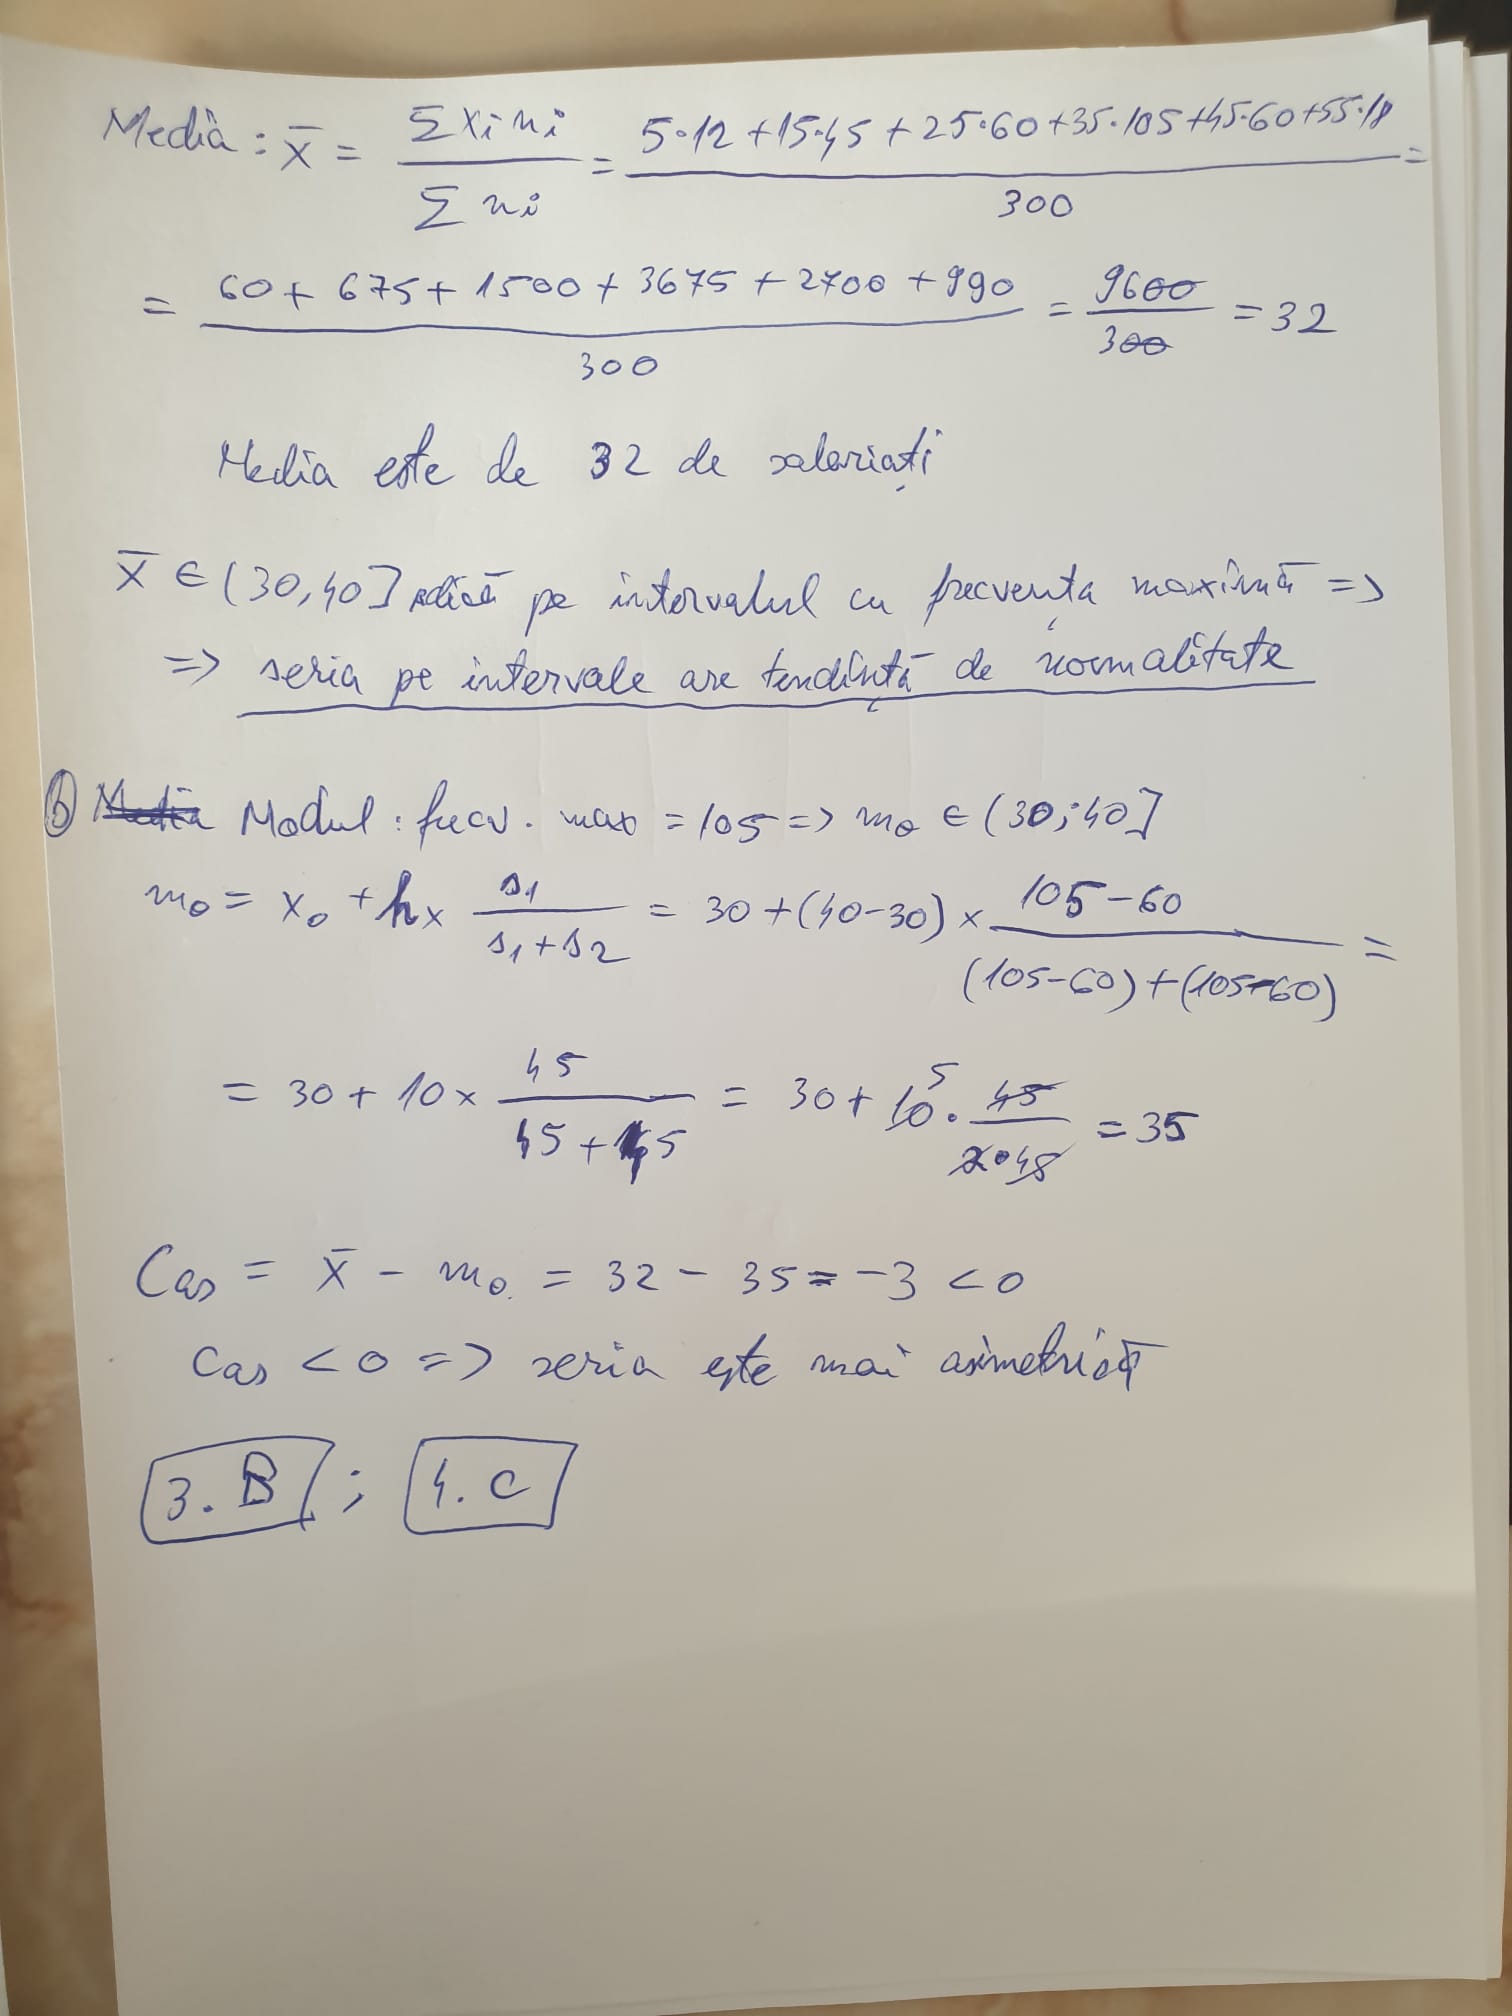 Media : x̄ = Σ xi ni / Σ ni = 5·12 + 15·45 + 25·60 + 35·105 + 45·60 + 55·18 / 300 =
= 60 + 675 + 1500 + 3675 + 2700 + 990 / 300 = 9600 / 300 = 32
Media este de 32 de salariați
x̄ ∈ (30,40] adică pe intervalul cu frecvența maximă =>
=> seria pe intervale are tendință de normalitate
b) Media Modul : frecv. max = 105 => mo ∈ (30;40]
mo = xo + h × s1 / s1 + s2 = 30 + (40-30) × 105-60 / (105-60)+(105-60) =
= 30 + 10 × 45 / 45 + 45 = 30 + 10 5 · 45 / 2·45 = 35
Cas = x̄ - mo = 32 - 35 = -3 < 0
Cas < 0 => seria este mai asimetrică
3. B ; 4. C